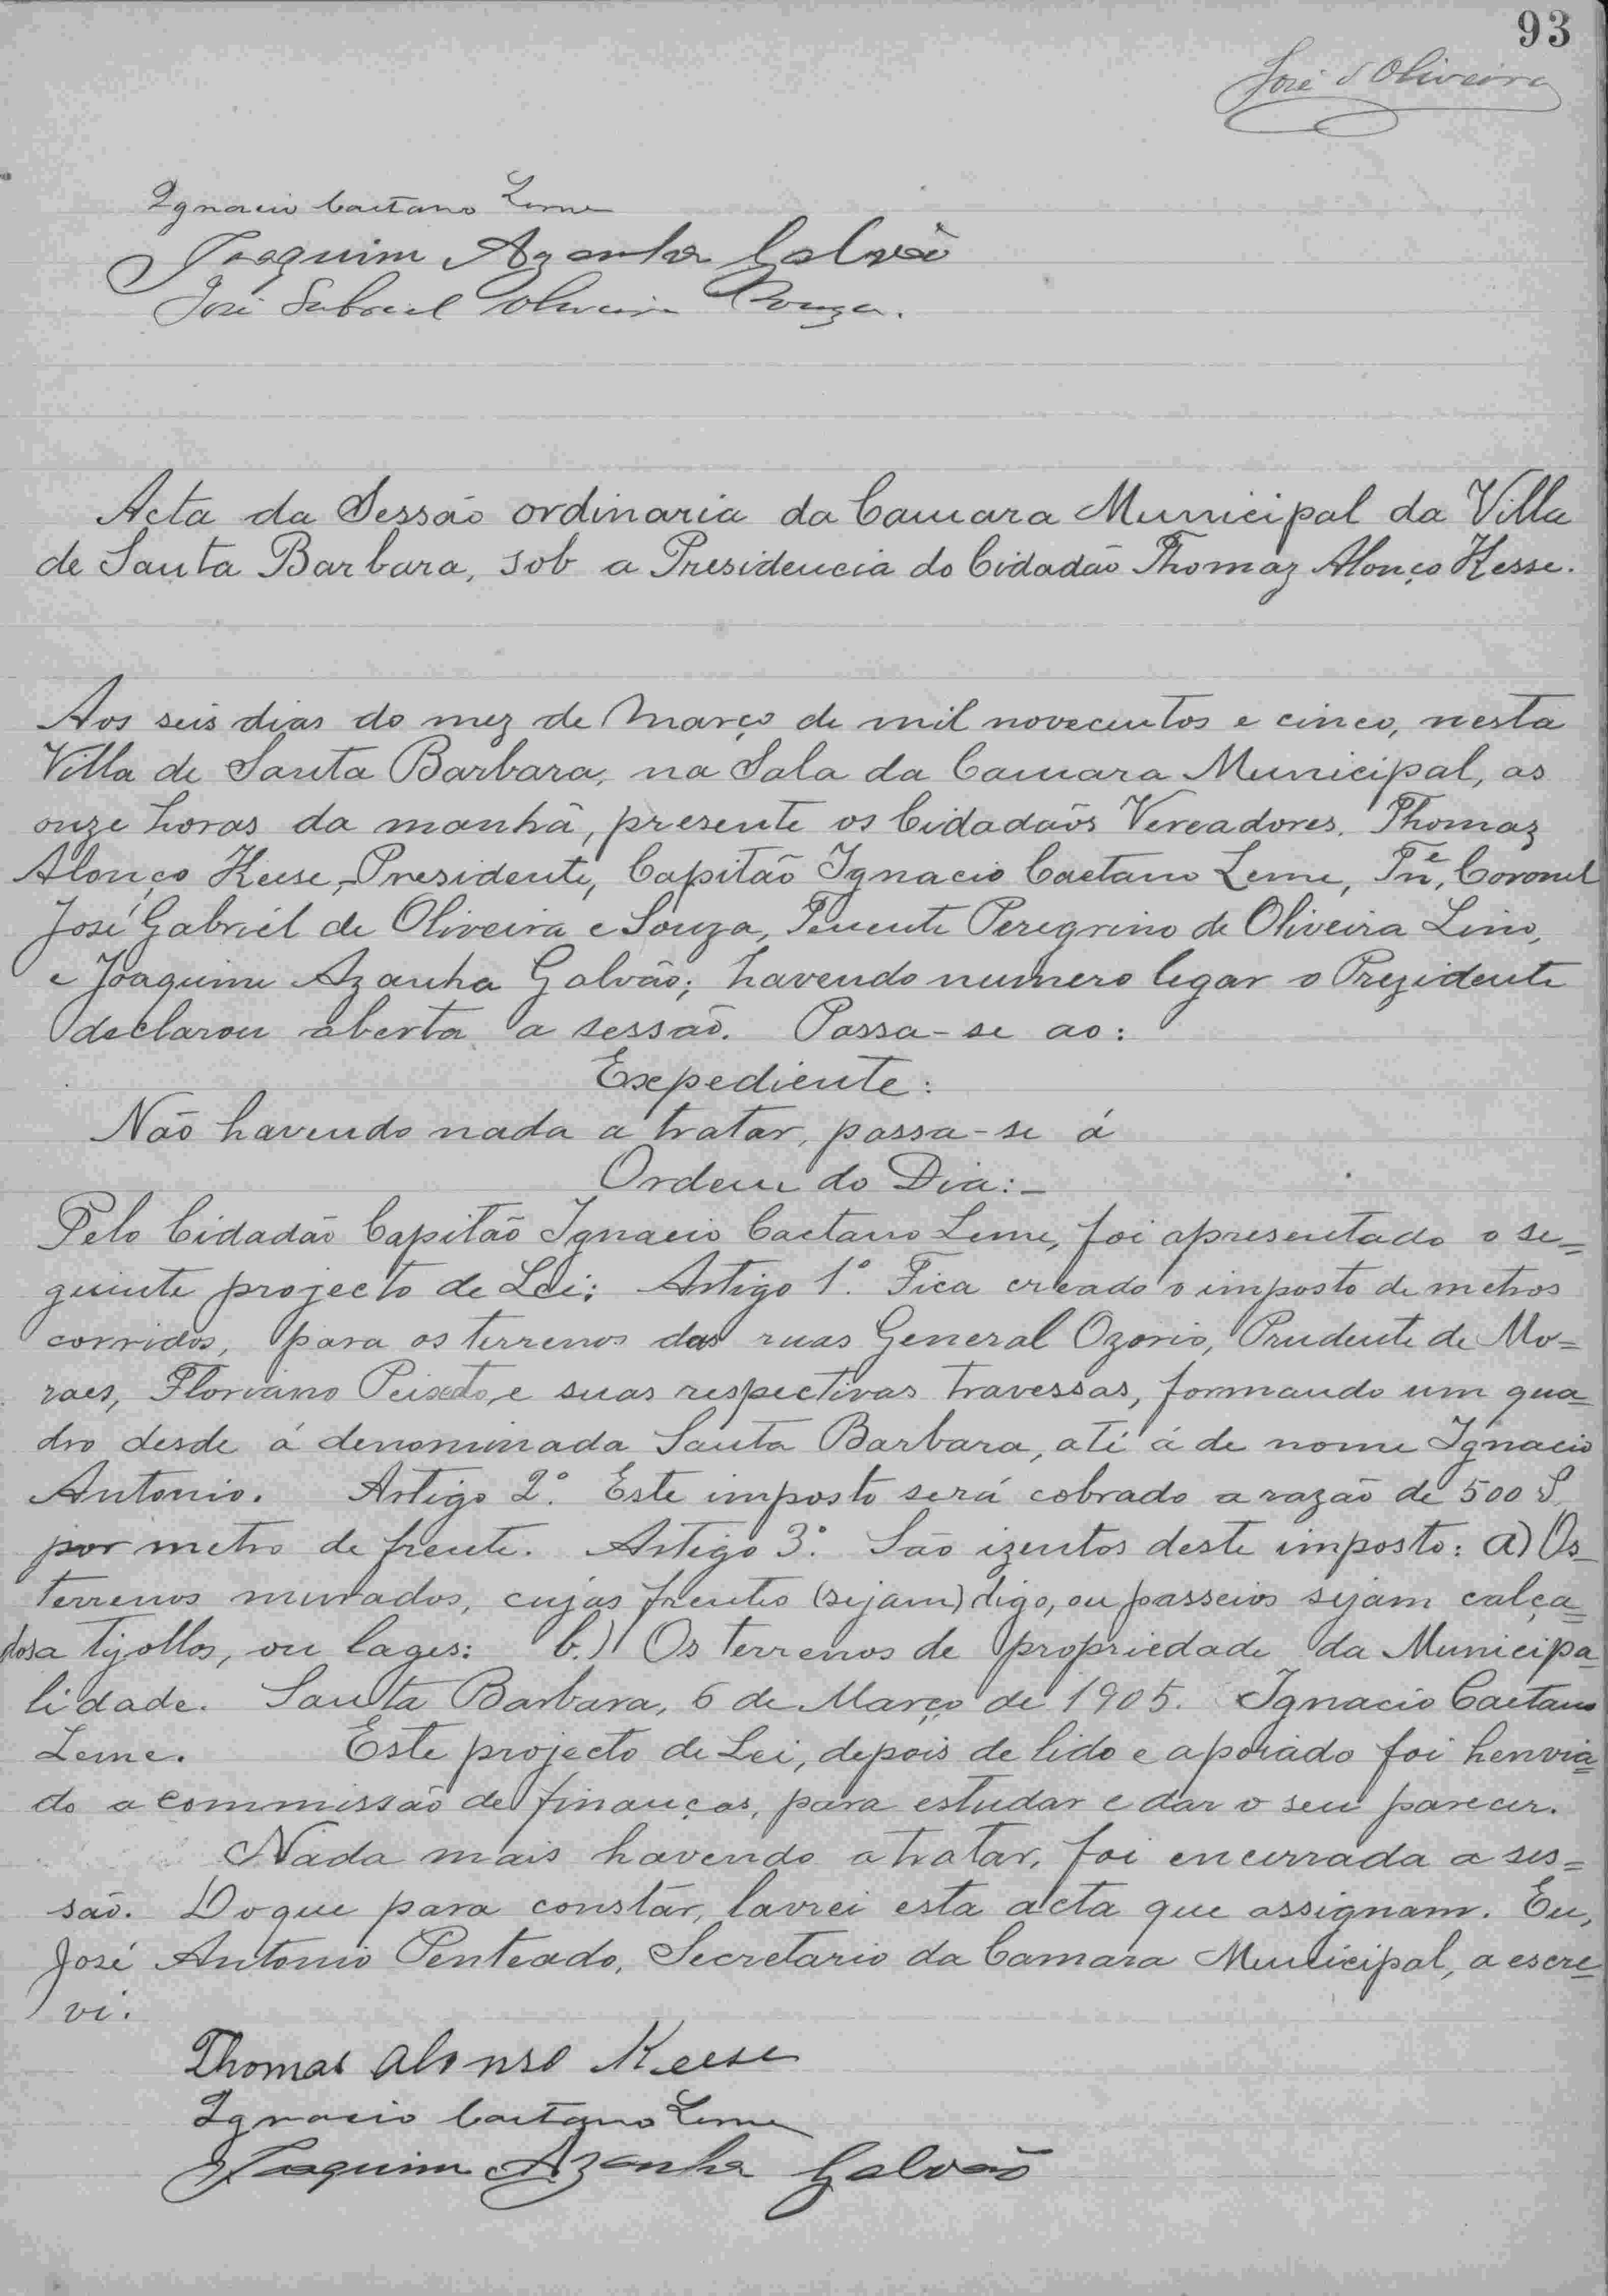 93
José d'Oliveira
Ignacio Caetano Leme
Joaquim Azanha Galvão
José Gabriel Oliveira Souza.
Acta da Sessão ordinaria da Camara Municipal da Villa
de Santa Barbara, sob a Presidencia do Cidadão Thomaz Alonço Kesse.
Aos seis dias do mez de Março de mil novecentos e cinco, nesta
Villa de Santa Barbara, na Sala da Camara Municipal, as
onze horas da manhã, presente os Cidadãos Vereadores. Thomaz
Alonço Keese, Presidente, Capitão Ignacio Caetano Leme, Tnē, Coronel
José Gabriel de Oliveira e Souza, Tenente Peregrino de Oliveira Lino,
e Joaquim Azanha Galvão; havendo numero legar o Prezidente
declarou aberta a sessão. Passa-se ao:
Expediente:
Não havendo nada a tratar, passa-se á
Ordem do Dia:-
Pelo Cidadão Capitão Ignacio Caetano Leme, foi apresentado o se=
guinte projecto de Lei: Artigo 1º. Fica creado o imposto de metros
corridos, para os terrenos das ruas General Ozorio, Prudente de Mo=
raes, Floriano Peixoto, e suas respectivas travessas, formando um qua=
dro desde á denominada Santa Barbara, até á de nome Ignacio
Antonio. Artigo 2º. Este imposto será cobrado a razão de 500 $
por metro de frente. Artigo 3º. São izentos deste imposto: a) Os
terrenos murados, cujas frentes (sejam) digo, ou passeios sejam calça=
dos a tijollos, ou lages: b.) Os terrenos de propriedade da Municipa=
lidade. Santa Barbara, 6 de Março de 1905. Ignacio Caetano
Leme. Este projecto de Lei, depois de lido e apoiado foi henvia=
do a commissão de finanças, para estudar e dar o seu parecer.
Nada mais havendo a tratar, foi encerrada a ses=
são. Do que para constar, lavrei esta acta que assignam. Eu,
José Antonio Penteado, Secretario da Camara Municipal, a escre=
vi.
Thomas Alonso Keese
Ignacio Caetano Leme
Joaquim Azanha Galvão